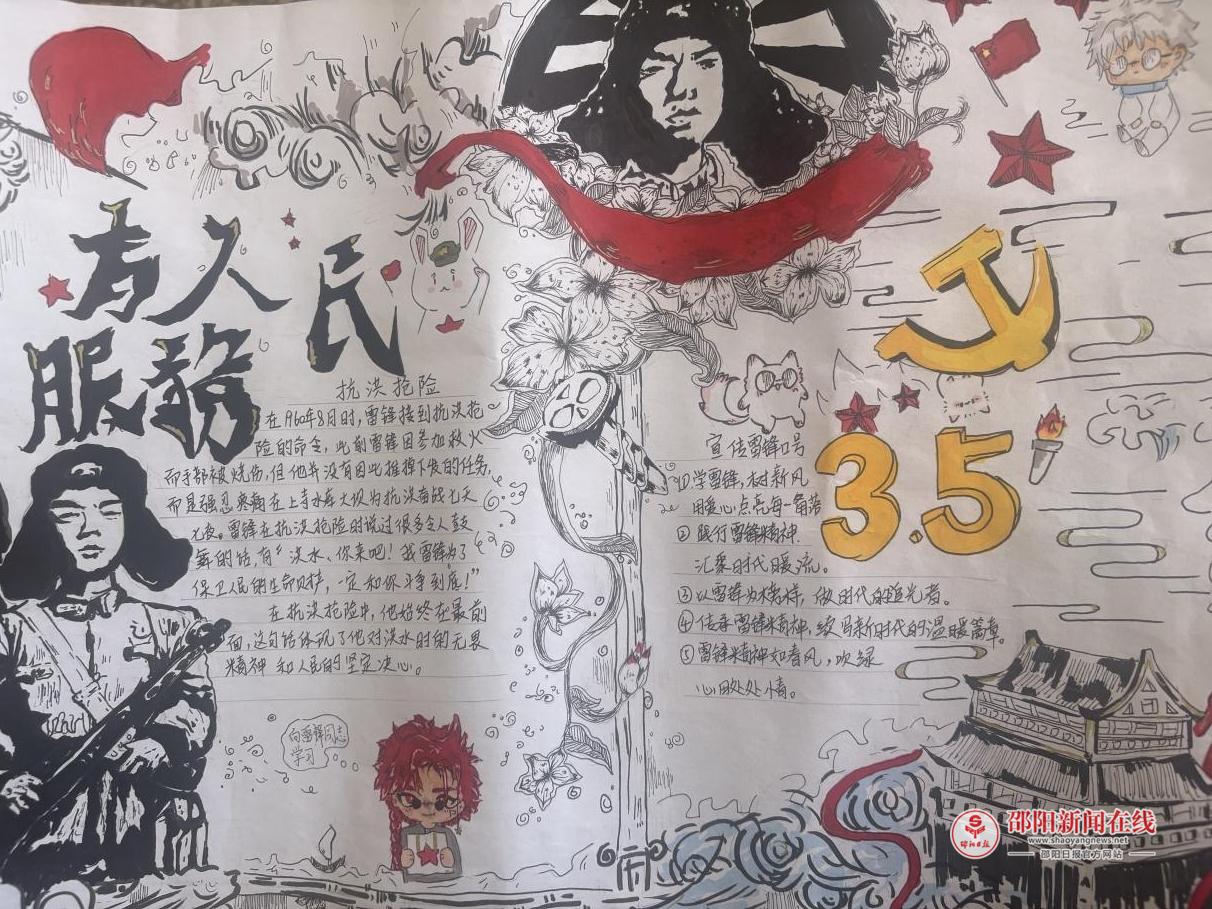 为人民
服务
抗洪抢险
在960年8月时,雷锋接到抗洪抢
险的命令,此前雷锋因参加救火
而手部被烧伤,但他并没有因此推掉下发的任务,
而是强忍疼痛在上寺水库大坝为抗洪奋战七天
七夜。雷锋在抗洪抢险时说过很多令人鼓
舞的话,有“洪水、你来吧!我雷锋为了
保卫人民的生命财产,一定和你斗争到底!”
在抗洪抢险中,他始终在最前
面,这句话体现了他对洪水时的无畏
精神和人民的坚定决心。
向雷锋同志
学习
宣传雷锋口号
①学雷锋,树新风
用爱心点亮每一角落
②践行雷锋精神
汇聚时代暖流。
③以雷锋为榜样,做时代的追光者。
④传承雷锋精神,续写新时代的温暖篇章。
⑤雷锋精神如春风,吹绿
心田处处情。
3.5
邵阳新闻在线
www.shaoyangnews.net
邵阳日报官方网站
邵阳日报